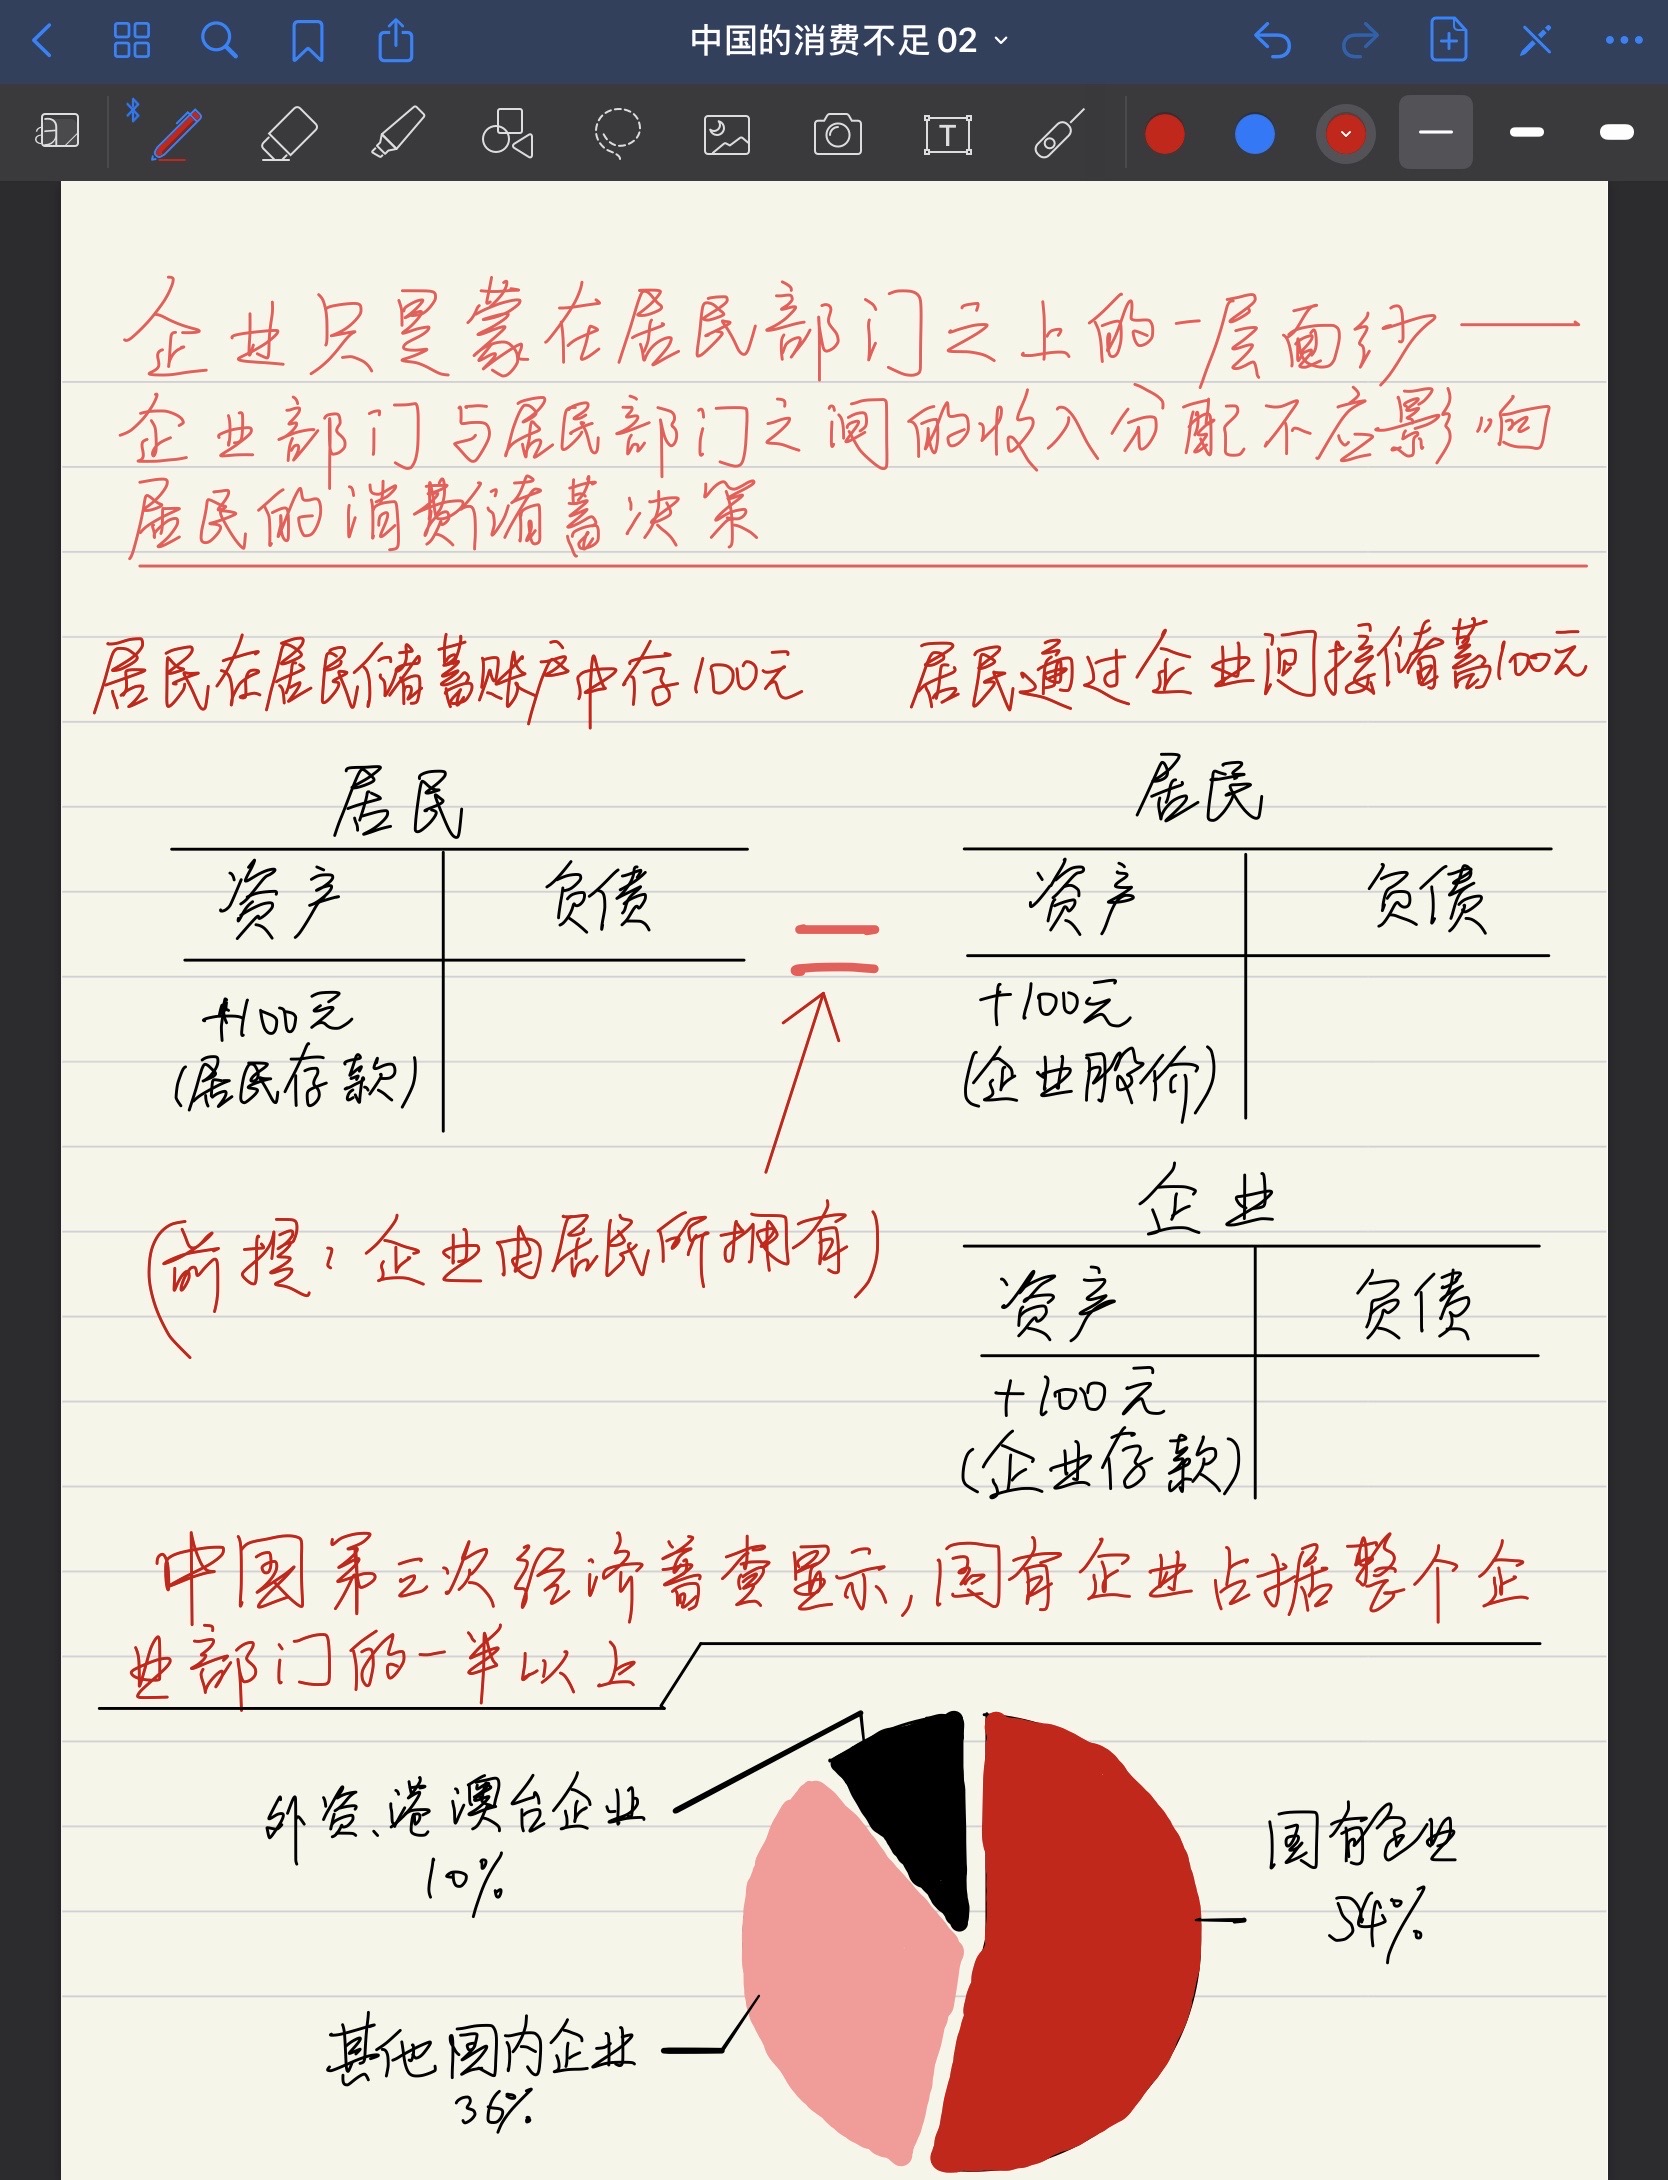 中国的消费不足 02
T
企业只是蒙在居民部门之上的一层面纱——
企业部门与居民部门之间的收入分配不应影响
居民的消费储蓄决策
居民在居民储蓄账户中存100元
居民通过企业间接储蓄100元
居民
资产 负债
+100元
(居民存款)
=
居民
资产 负债
+100元
(企业股价)
(前提:企业由居民所拥有)
企业
资产 负债
+100元
(企业存款)
中国第三次经济普查显示,国有企业占据整个企
业部门的一半以上
外资、港澳台企业
10%
国有企业
54%
其他国内企业
36%